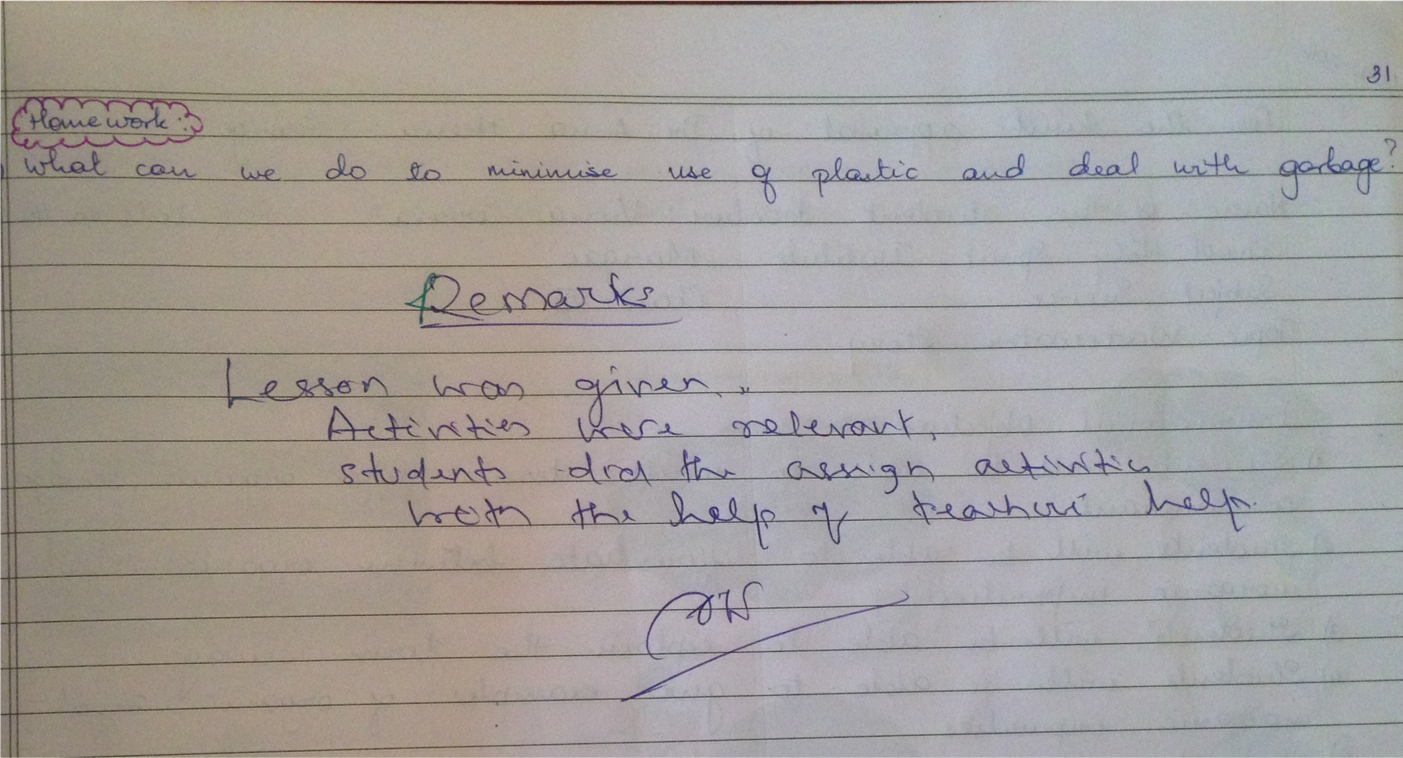 31
Homework:
What can we do to minimise use of plastic and deal with garbage?
Remarks
Lesson was given.
Activities were relevant.
students did the assign activities
with the help of teachers' help.